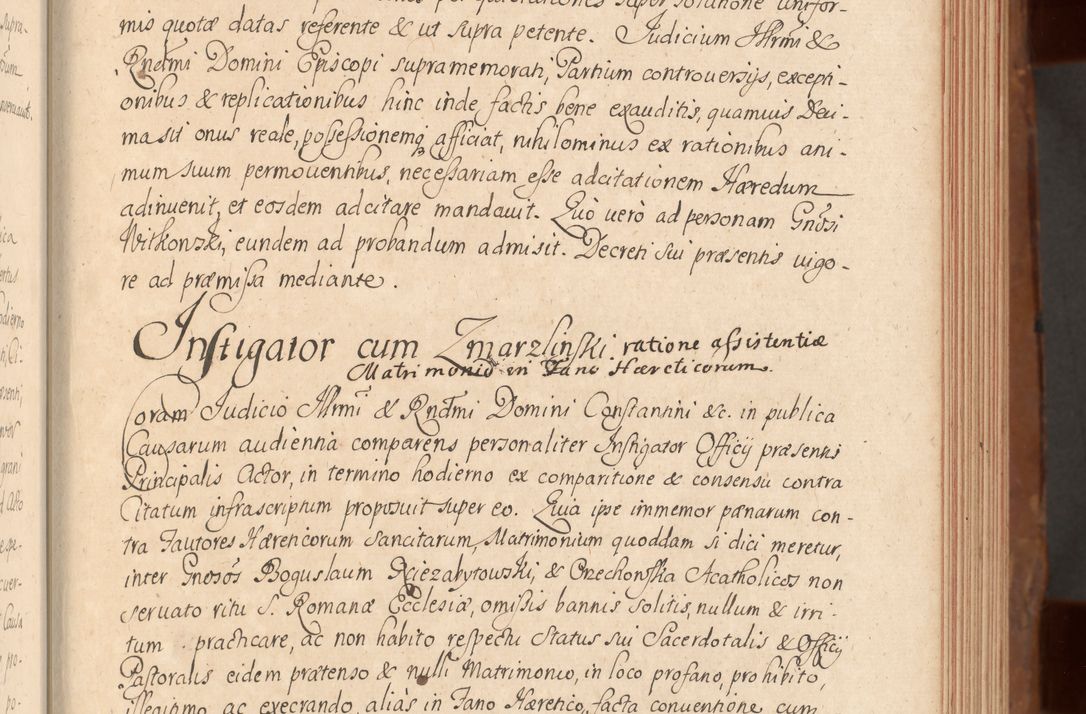 mis quotæ datas referente & ut supra petente. Iudicium Illrmi &
Rndmi Domini Episcopi supramemorati, Partium controversijs, excepti-
onibus & replicationibus hinc inde factis bene exauditis, quamuis Deci-
ma sit onus reale, possessionemq afficiat, nihilominus ex rationibus ani-
mum suum permoventibus, necessariam esse adcitationem Hæredum
adinuenit, et eosdem adcitare mandauit. Quò uerò ad personam Gnosi
Witkonski, eundem ad probandum admisit. Decreti sui præsentis uigo-
re ad præmissa mediante.
Instigator cum Zmarzlinski ratione assistentiæ
Matrimonio in Fano Hæreticorum.
Coram Iudicio Illrmi & Rndmi Domini Constantini &c. in publica
Causarum audientia comparens personaliter Instigator Officij præsentis
Principalis Actor, in termino hodierno ex comparitione & consensu contra
Citatum infrascriptum proposuit super eo. Quia ipse immemor pænarum con-
tra Fautores Hæreticorum sancitarum, Matrimonium quoddam si dici meretur,
inter Gnosos Boguslaum Niezabytowski, & Orzechowska Acatholicos non
seruato ritu S. Romanæ Ecclesiæ, omissis bannis solitis, nullum & irri-
tum practicare, ac non habito respectu Status sui Sacerdotalis & Officij
Pastoralis eidem prætenso & nulli Matrimonio, in loco profano, prohibito,
illegitimo ac execrando, aliàs in Fano Hæretico, facta conuentione cum